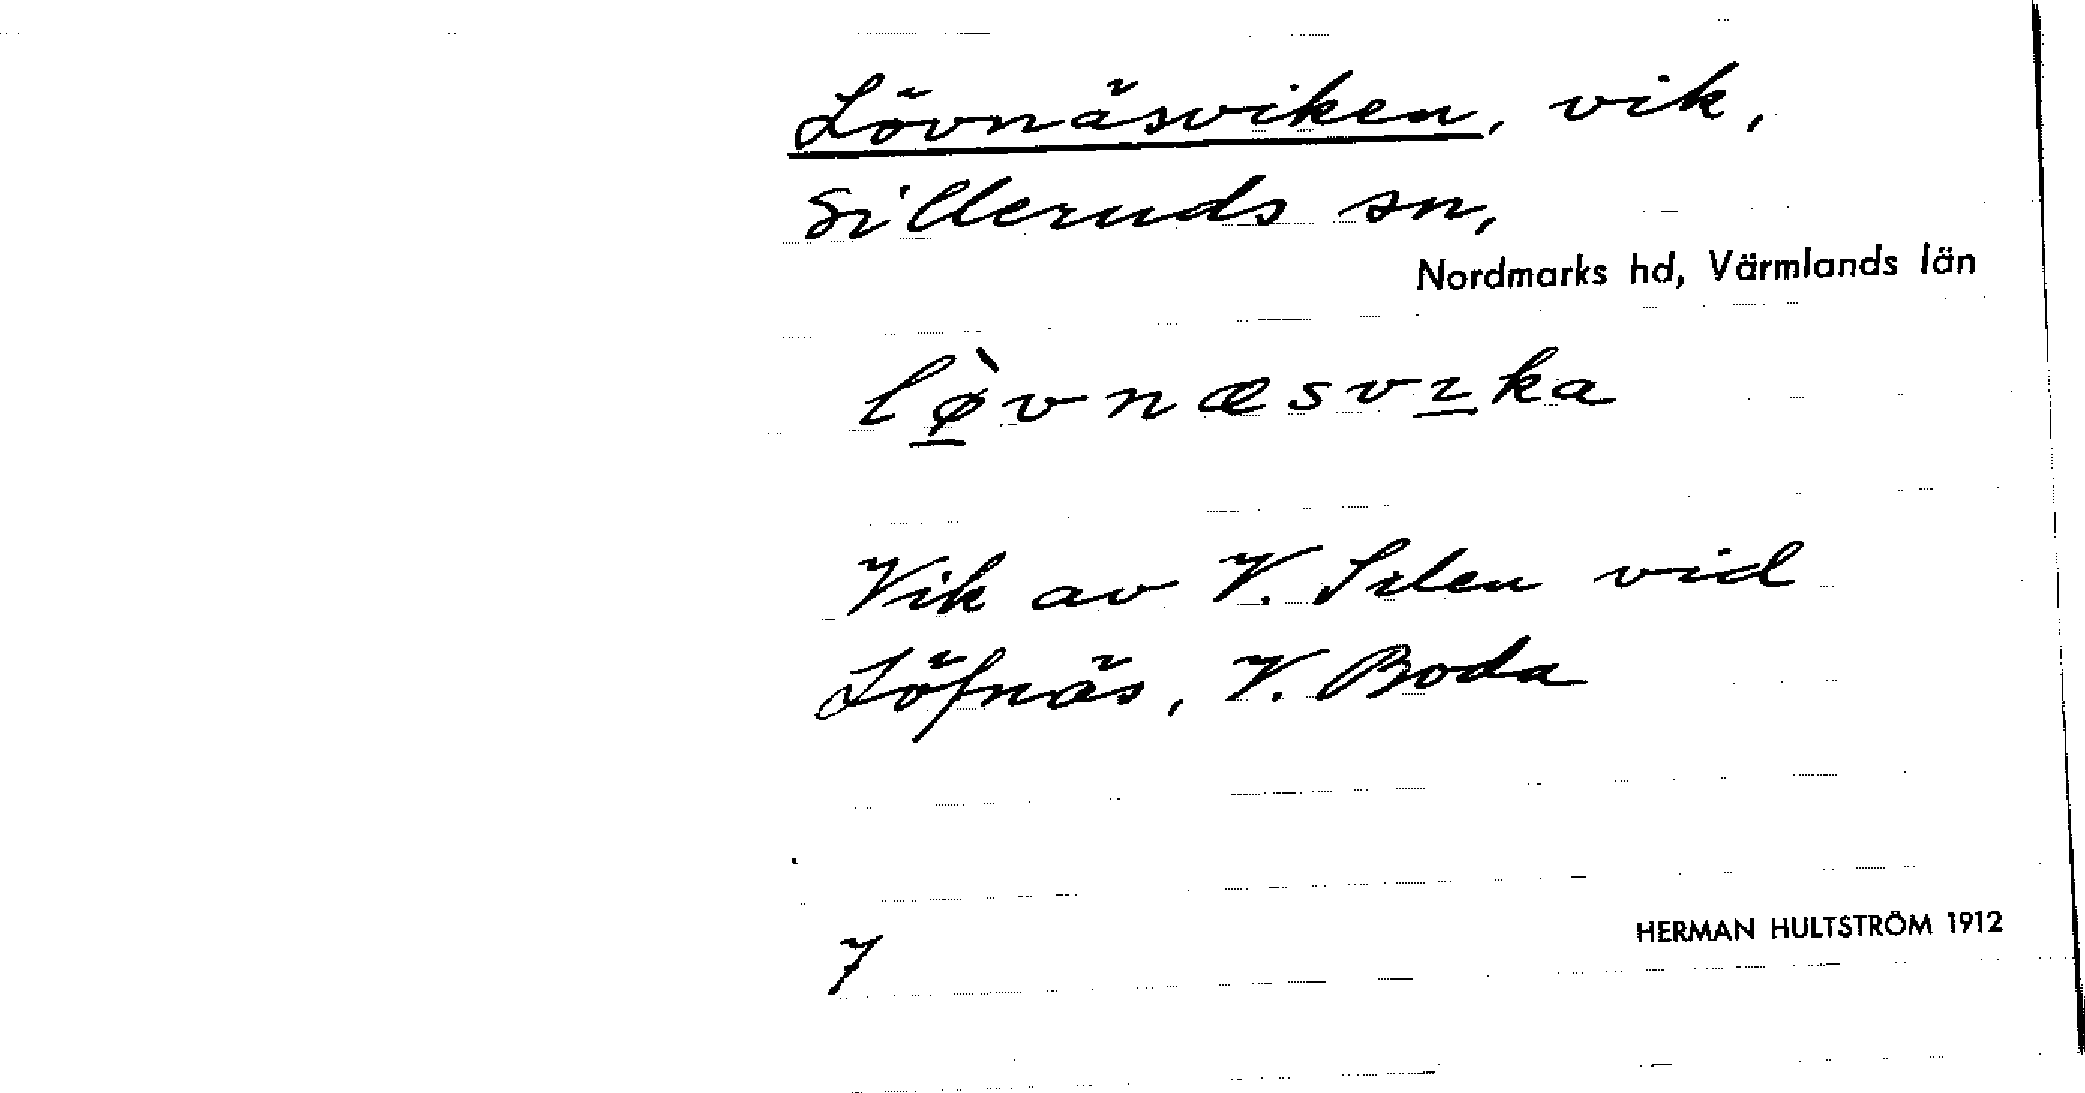 Lövnäsviken, vik,
Silleruds sn,
Nordmarks hd, Värmlands län
lø̱̀vnæsvɪ̱ka
Vik av V. Silen vid
Löfnäs, V. Boda
7
HERMAN HULTSTRÖM 1912